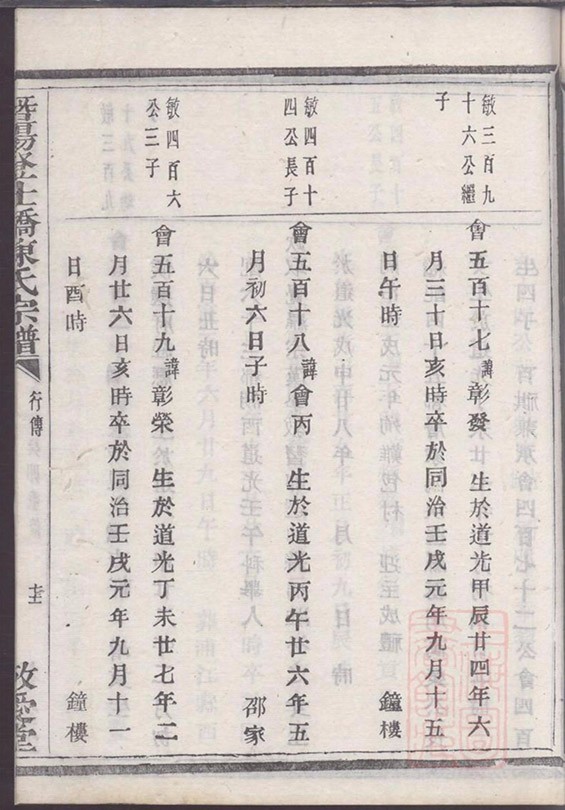 敏三百九
十六公繼
子
會五百十七諱彰發 生於道光甲辰廿四年六
月三十日亥時卒於同治壬戌元年九月十五
日午時 鐘樓
敏四百十
四公長子
會五百十八諱會丙 生於道光丙午廿六年五
月初六日子時 邵家
敏四百六
公三子
會五百十九諱彰榮 生於道光丁未廿七年二
月廿六日亥時卒於同治壬戌元年九月十一
日酉時 鐘樓
暨陽登仕橋陳氏宗譜 行傳 敦愛堂